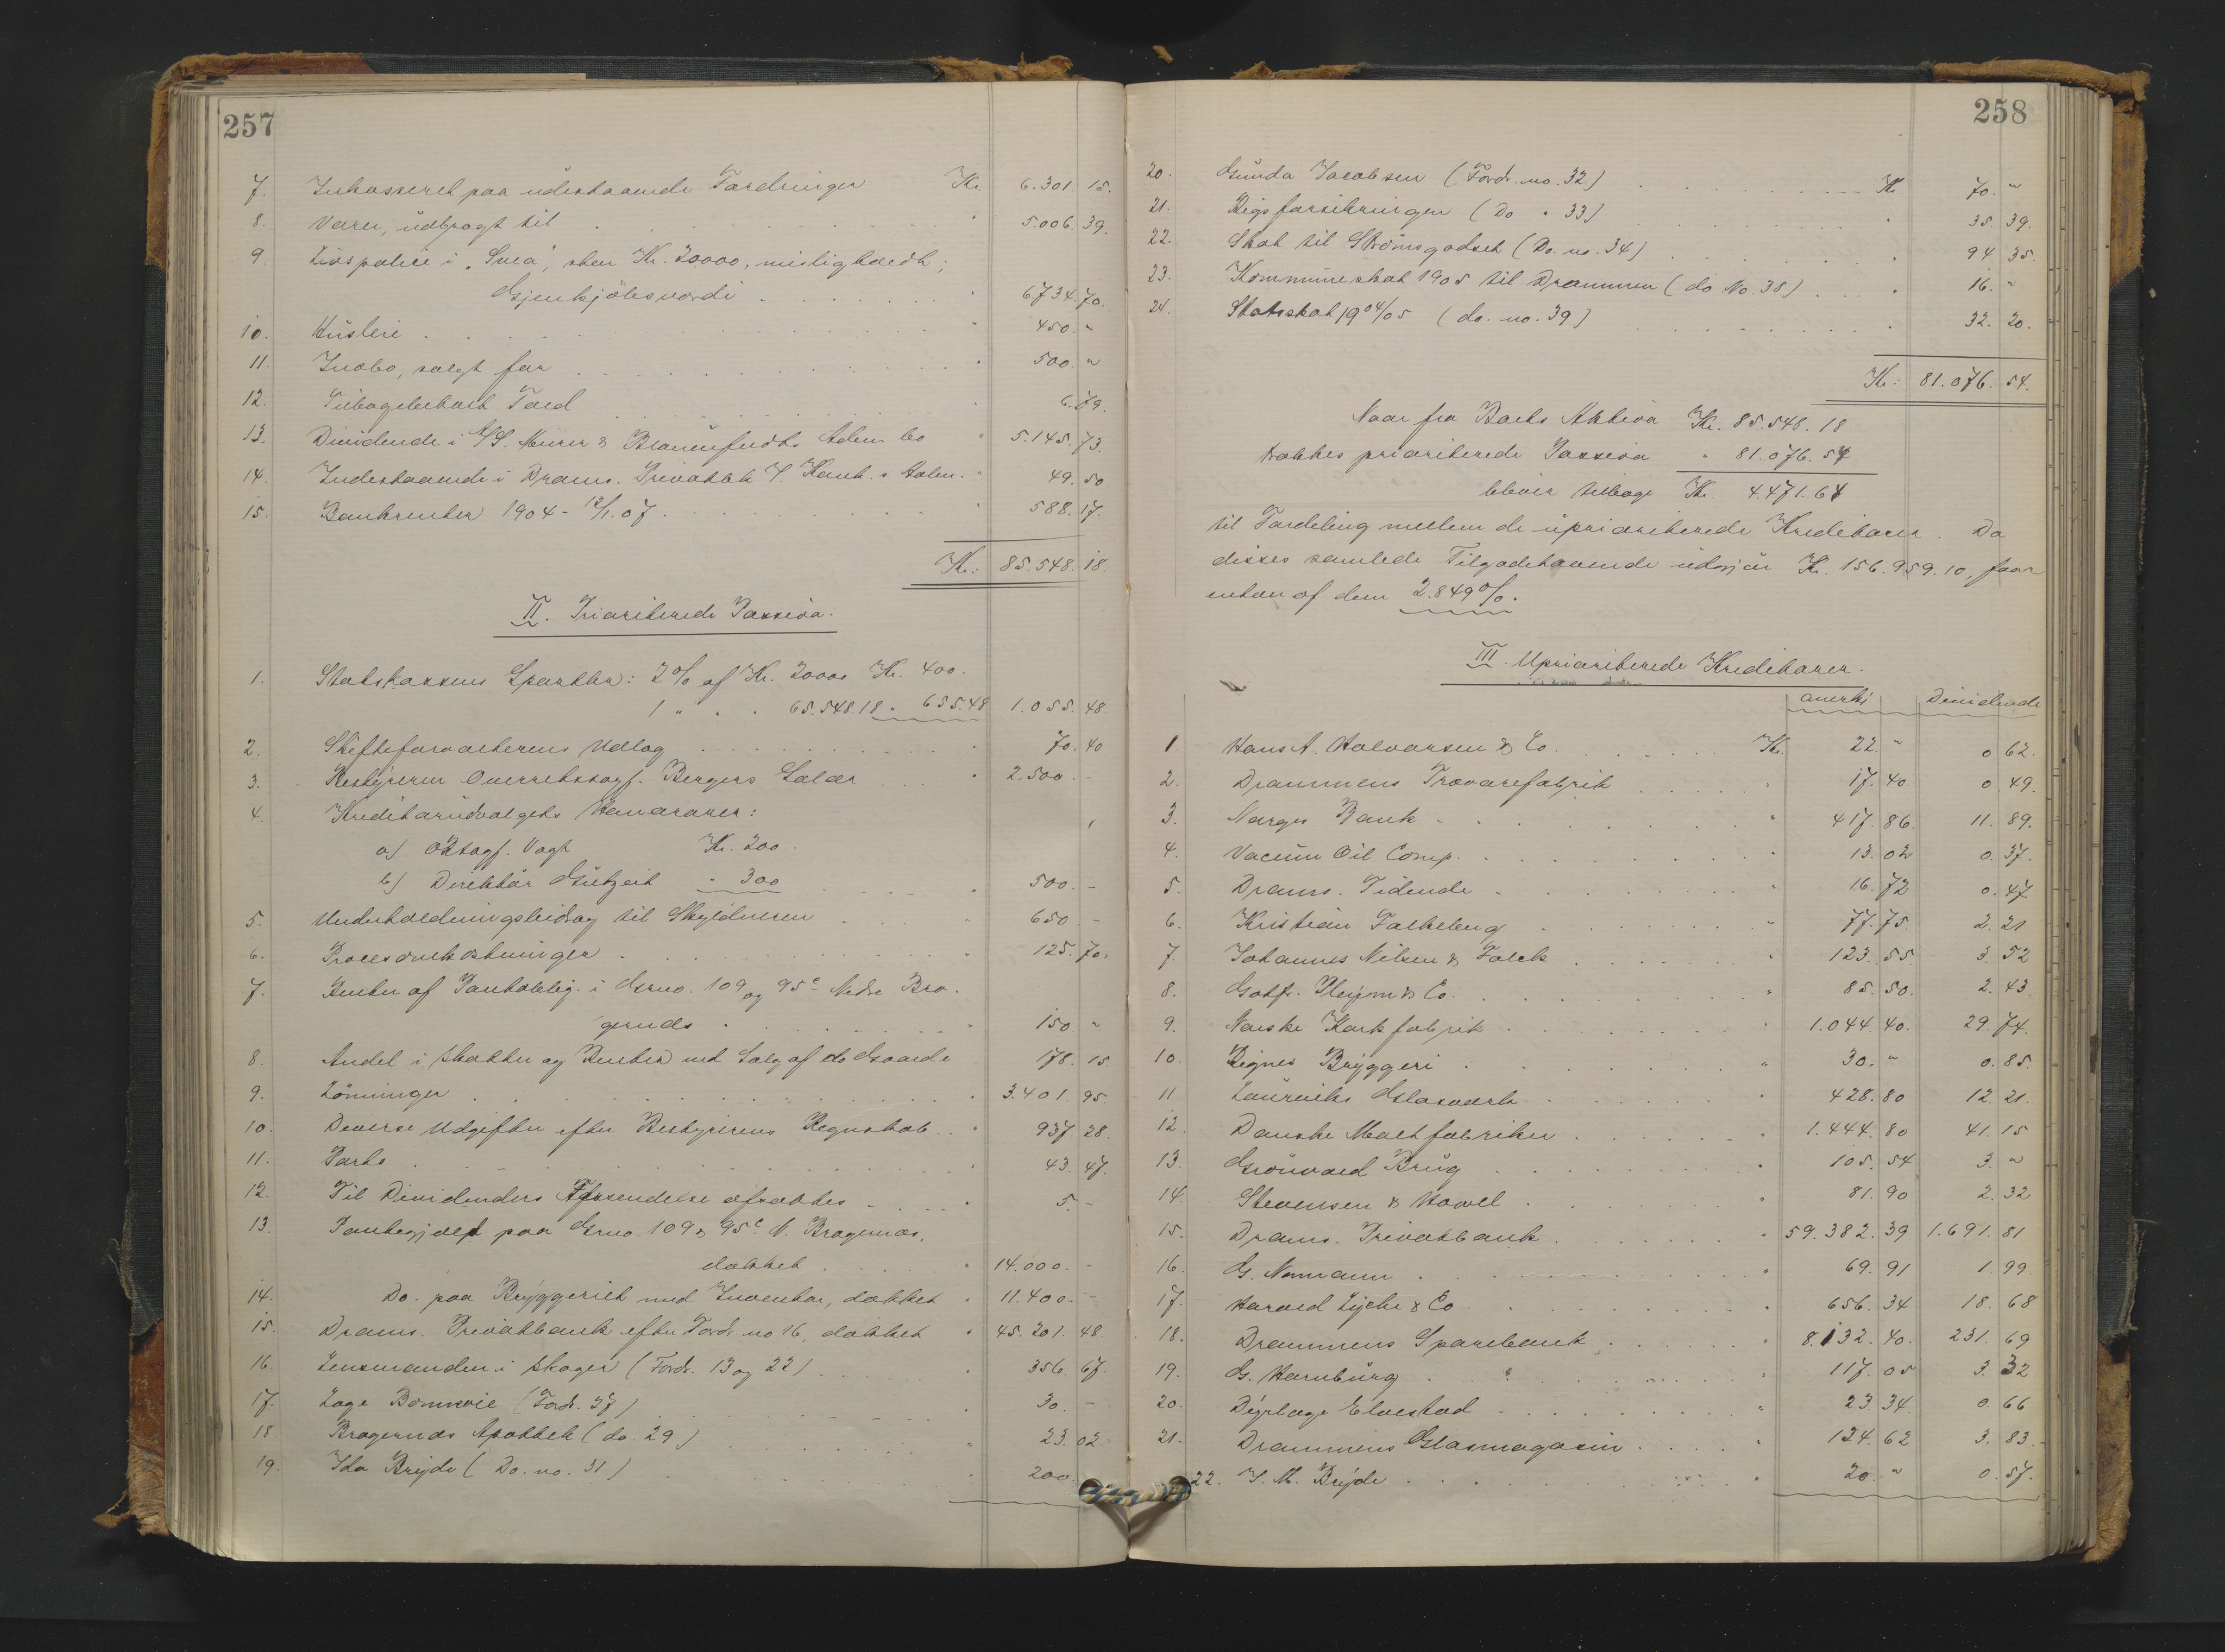 257
7. Inkasseret paa udestaaende Fordringer Kr. 6.301.15.
8. Varer, udbragt til " 5.006.39.
9. Livspolice i "Svea", stor Kr. 20000, misligholdt;
Gjenkjøbsværdi " 6734.70.
10. Husleie " 450. "
11. Indbo, solgt for " 500. "
12. Tilbagebetalt Told " 6.79.
13. Dividende i A/S. Meier & Blauenfeldts Adm. bo " 5.145.73.
14. Indestaaende i Drams. Privatbk " 49.50
15. Bankrenter 1904 - 12/1.07. " 588.17.
Kr: 85.548.18.
II. Prioriterede Passiva.
1. Statskassens Sportler: 2% af Kr. 20000 Kr. 400.
1 " " " 65.548.18 " 655.48 1.055.48
2. Skifteforvalterens Udlæg " 70.40
3. Bestyreren Overretssagf. Bergers Salær " 2.500.-
4. Kreditorudvalgets Honorarer:
a) ORsagf. Vogt Kr. 200.
b) Direktør Gutzeit " 300 " 500.-
5. Underholdningsbidrag til Skyldneren " 650.-
6. Procesomkostninger " 125.70.
7. Renter af Pantobblig. i Grno. 109 og 95c Nedre Bra-
gernds " 150. "
8. Andel i skatter og Renter ved Salg af do Gaarde 178.15
9. Lønninger " 3.401.95.
10. Diverse Udgifter efter Bestyrerens Regnskab " 937.28.
11. Porto " 43.47.
12. Til Dividenders Afsendelse afsættes " 5.-
13. Pantegjæld paa Grno. 109 & 95c N. Bragernæs,
dækket " 14.000.-
14. Do. paa Bryggeriet med Inventar, dækket " 11.400.-
15. Drams. Privatbank efter Fordr no 16, dækket " 45.201.48.
16. Lensmanden i Skoger (Fordr. 13 og 22) " 356.67.
17. Lage (Fordr. 37) " 30.-
18 Bragernæs Apothek (do. 29) " 23.02
19. Ida Bryde (Do. no. 31) " 200.
258
20. Gunda Jacobsen (Fordr. no. 32) Kr 70. "
21. Rigsforsikringen (Do " 33) " 35.39.
22. Skat til Strømsgodset (Do. no. 34) " 94.35.
23. Kommuneskat 1905 til Drammen (do No. 38) " 16. "
24. Statsskat 1904/05 (do. no. 39) " 32.20.
Kr: 81.076.54.
Naar fra Boets Aktiva Kr. 85.548.18
trækkes prioriterede Passiva " 81.076.54
bliver tilbage Kr. 4.471.64
til Fordeling mellem de upriariterede Kreditorer. Da
disses samlede Tilgodehavende udgjør Kr. 156.959.10, faar
enhver af dem 2.849%.
III. Uprioriterede Kreditorer.
anerkj Dividende
1 Hans A. Halvorsen & Co. Kr. 22. " 0 62.
2. Drammens Trævarefabrik " 17.40 0.49.
3. Norges Bank " 417.86 11.89.
4. Vacuum Oil Comp. " 13.02 0.37.
5. Drams. Tidende " 16.72 0.47
6. Kristian Falkeberg " 77.75. 2.21
7. Johannes Nilsen & Falck " 123.55. 3.52
8. Gotfr. Pleym & Co. " 85.50. 2.43.
9. Norske Korkfabrik " 1.044.40. 29.74.
10. Rignes Bryggeri " 30. " 0.85.
11 Laurviks Glasværk " 428.80 12.21.
12. Danske Maltfabriker " 1.444.80 41.15
13. Grønvold Brug " 105.54 3. "
14. Stevensen & Howel " 81.90 2.32
15. Drams. Privatbank " 59.382.39 1.691.81
16. G. Normann " 69.91 1.99
17. Harald Lyche & Co " 656.34 18.68
18. Drammens Sparebank " 8.132.40. 231.69
19. G. Hornburg " 117.05 3.32
20. Dyrlæge Elvestad " 23.34 0.66
21. Drammens Glasmagasin " 134.62 3.83.
22. J. M. Bryde " 20. " 0.57.